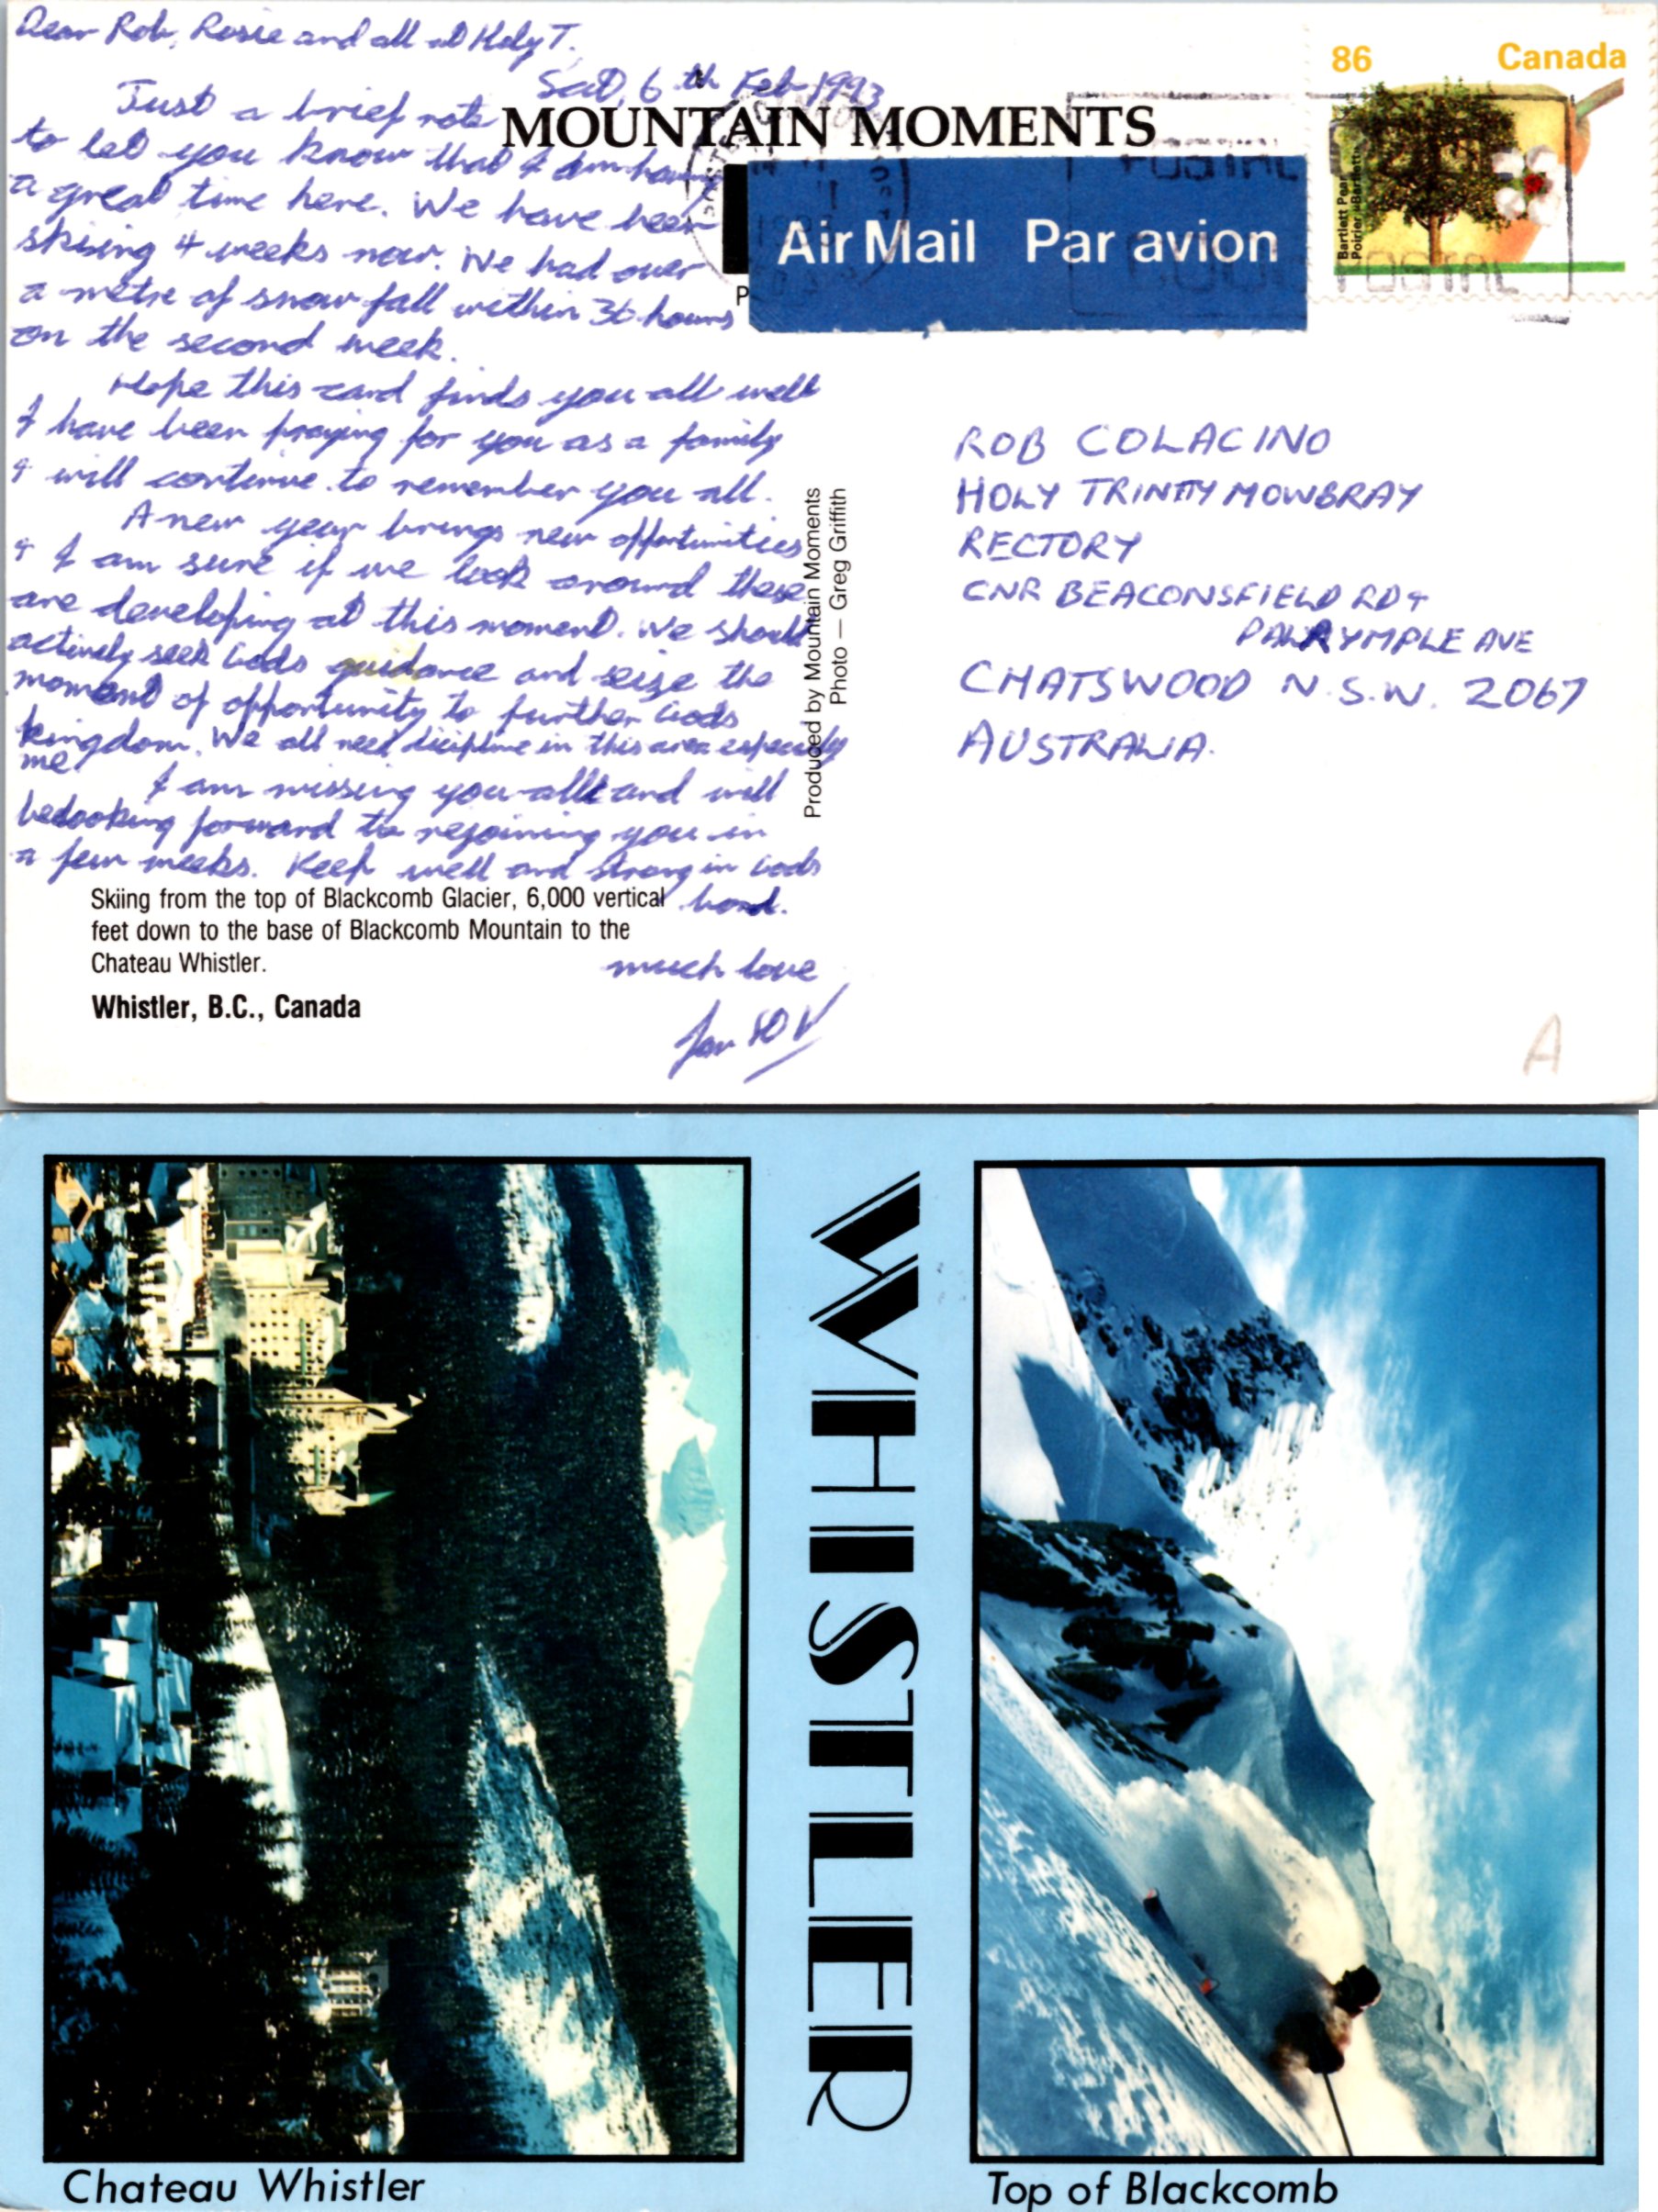 Dear Rob, Rosie and all at Holy T.
Sat, 6th Feb 1993
Just a brief note
to let you know that I am having
a great time here. We have been
skiing 4 weeks now. We had over
a metre of snow fall within 36 hours
on the second week.
Hope this card finds you all well
I have been praying for you as a family
& will continue to remember you all.
A new year brings new opportunities
& I am sure if we look around these
are developing at this moment. We should
actively seek Gods guidance and seize the
moment of opportunity to further Gods
kingdom. We all need dicipline in this area especially
me.
I am missing you all and will
be looking forward to rejoining you in
a few weeks. Keep well and strong in Gods
hand.
much love
MOUNTAIN MOMENTS
Air Mail Par avion
P
86 Canada
Bartlett Pear
Poirier «Bartlett»
POSTAL
CODE POSTAL
Produced by Mountain Moments
Photo — Greg Griffith
ROB COLACINO
HOLY TRINITY MOWBRAY
RECTORY
CNR BEACONSFIELD RD &
DALRYMPLE AVE
CHATSWOOD N.S.W. 2067
AUSTRALIA.
Skiing from the top of Blackcomb Glacier, 6,000 vertical
feet down to the base of Blackcomb Mountain to the
Chateau Whistler.
Whistler, B.C., Canada
A
WHISTLER
Chateau Whistler
Top of Blackcomb